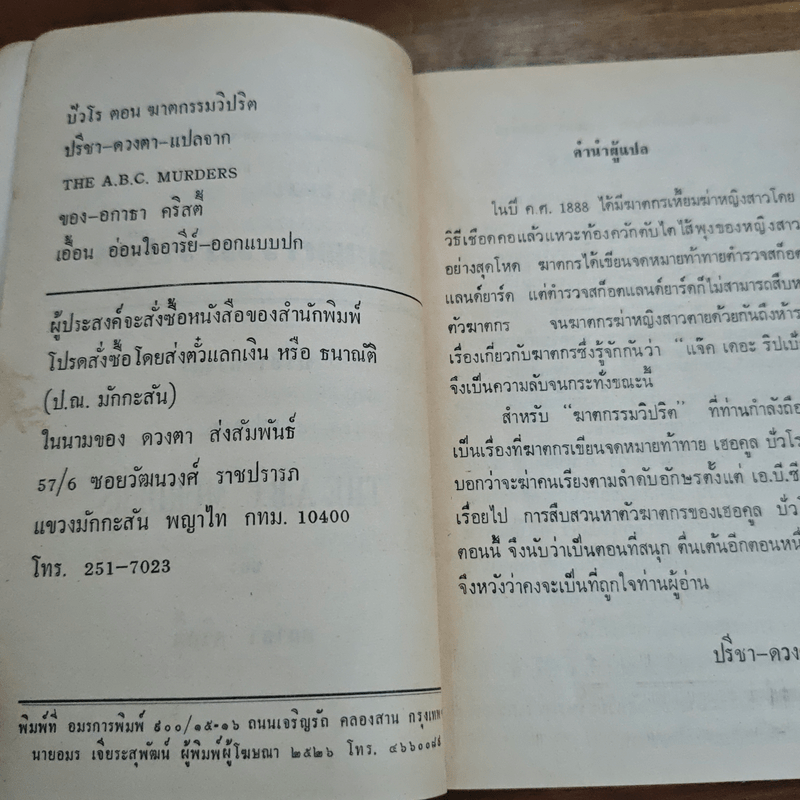 บัวโร ตอน ฆาตกรรมวิปริต
ปรีชา-ดวงตา-แปลจาก
THE A.B.C. MURDERS
ของ-อกาธา คริสตี้
เอื้อน อ่อนใจอารีย์-ออกแบบปก
ผู้ประสงค์จะสั่งซื้อหนังสือของสำนักพิมพ์
โปรดสั่งซื้อโดยส่งตั๋วแลกเงิน หรือ ธนาณัติ
(ป.ณ. มักกะสัน)
ในนามของ ดวงตา ส่งสัมพันธ์
57/6 ซอยวัฒนวงศ์ ราชปรารภ
แขวงมักกะสัน พญาไท กทม. 10400
โทร. 251-7023
พิมพ์ที่ อมรการพิมพ์ ๙๐๐/๑๕-๑๖ ถนนเจริญรัถ คลองสาน กรุงเทพ
นายอมร เจียระสุพัฒน์ ผู้พิมพ์ผู้โฆษณา ๒๕๒๖ โทร.
คำนำผู้แปล
ในปี ค.ศ. 1888 ได้มีฆาตกรเหี้ยมฆ่าหญิงสาวโดย
วิธีเชือดคอแล้วแหวะท้องควักตับไตไส้พุงของหญิงสาว
อย่างสุดโหด ฆาตกรได้เขียนจดหมายท้าทายตำรวจสก็อต
แลนด์ยาร์ด แต่ตำรวจสก็อตแลนด์ยาร์ดก็ไม่สามารถสืบห
ตัวฆาตกร จนฆาตกรฆ่าหญิงสาวตายด้วยกันถึงห้าร
เรื่องเกี่ยวกับฆาตกรซึ่งรู้จักกันว่า “แจ๊ค เดอะ ริปเปอ
จึงเป็นความลับจนกระทั่งขณะนี้
สำหรับ “ฆาตกรรมวิปริต” ที่ท่านกำลังถือ
เป็นเรื่องที่ฆาตกรเขียนจดหมายท้าทาย เฮอคูล บัวโร
บอกว่าจะฆ่าคนเรียงตามลำดับอักษรตั้งแต่ เอ.บี.ซี
เรื่อยไป การสืบสวนหาตัวฆาตกรของเฮอคูล บัวโ
ตอนนี้ จึงนับว่าเป็นตอนที่สนุก ตื่นเต้นอีกตอนหนึ่
จึงหวังว่าคงจะเป็นที่ถูกใจท่านผู้อ่าน
ปรีชา-ดวง